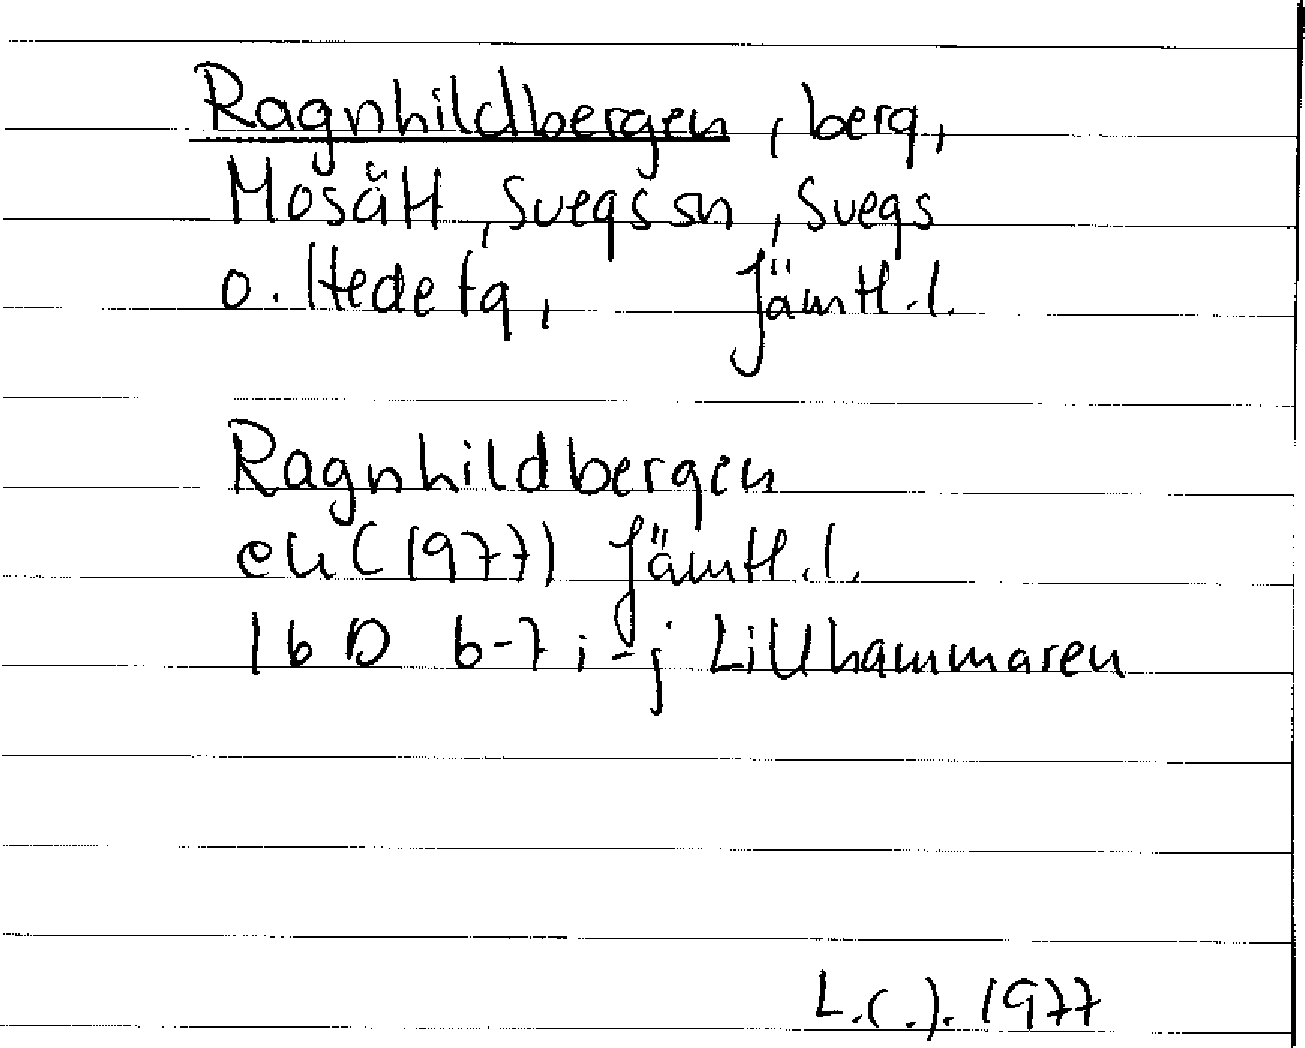 Ragnhildbergen, berg,
Mosätt, Svegs sn, Svegs
o. Hede tg, Jämtl. l.
Ragnhildbergen
ek (1977) Jämtl. l.
16 D 6-7 i-j Lillhammaren
L.C.J. 1977